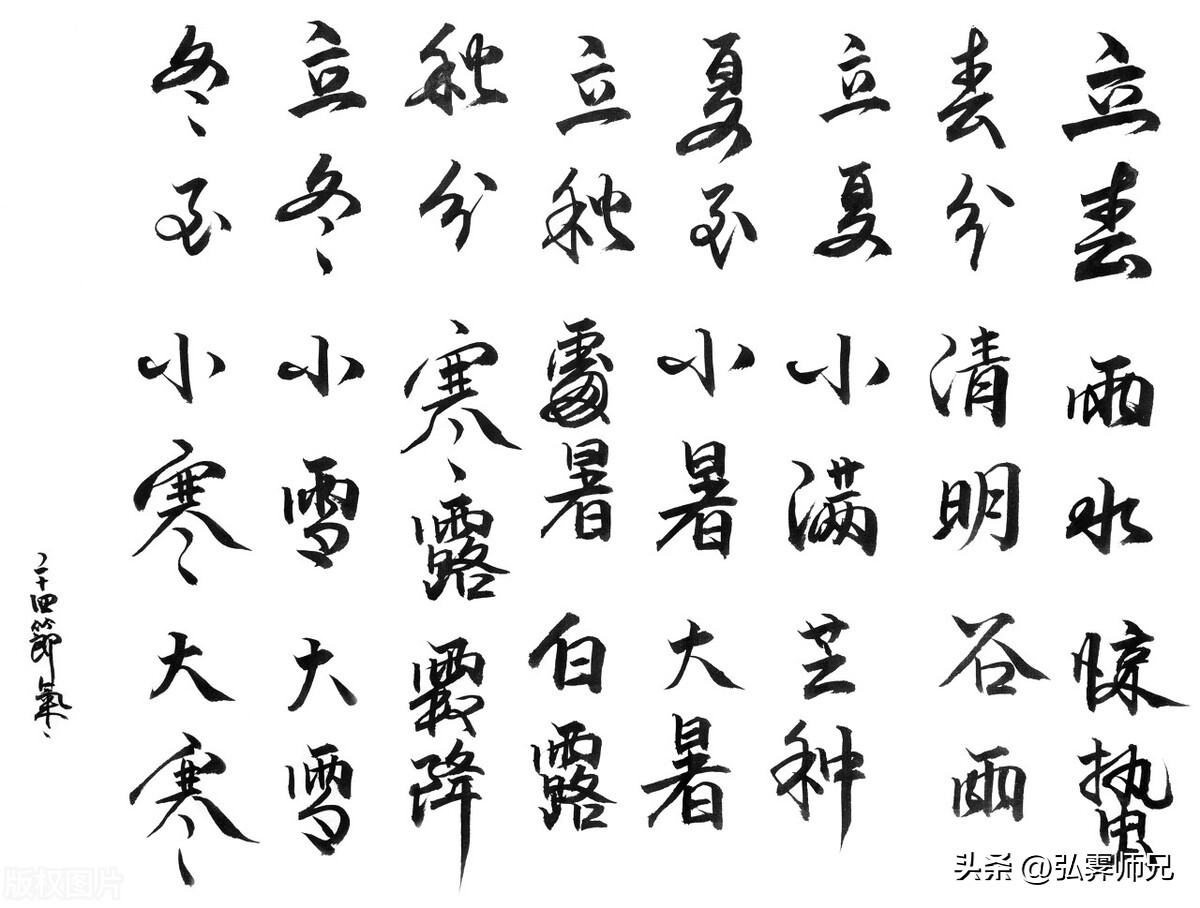 立春 雨水 惊蛰
春分 清明 谷雨
立夏 小满 芒种
夏至 小暑 大暑
立秋 處暑 白露
秋分 寒露 霜降
立冬 小雪 大雪
冬至 小寒 大寒
二十四節氣
头条 @弘霁师兄
版权图片